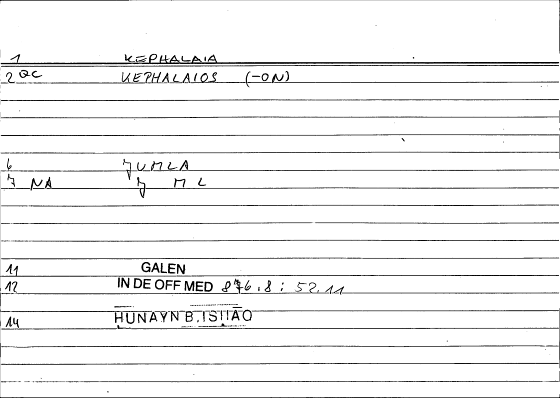 1 KEPHALAIA
2 QC KEPHALAIOS (-ON)
6 ȷUMLA
7 NA ȷ M L
11 GALEN
12 IN DE OFF MED 876.8 : 52.11
14 HUNAYN B. ISHAQ